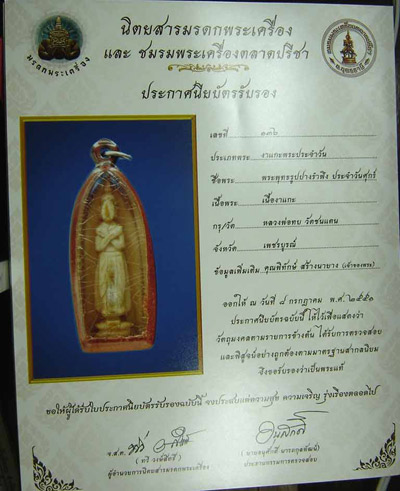 นิตยสารมรดกพระเครื่อง
และ ชมรมพระเครื่องตลาดปรีชา
มรดกพระเครื่อง
ประกาศนียบัตรรับรอง
เลขที่ ๑๓๖
ประเภทพระ งาแกะพระประจำวัน
ชื่อพระ พระพุทธรูปปางรำพึง ประจำวันศุกร์
เนื้อพระ เนื้องาแกะ
กรุ/วัด หลวงพ่อทบ วัดชนแดน
จังหวัด เพชรบูรณ์
ข้อมูลเพิ่มเติม คุณพิทักษ์ สร้างนายาง (เจ้าของพระ)
ออกให้ ณ วันที่ ๘ กรกฎาคม พ.ศ. ๒๕๕๑
ประกาศนียบัตรฉบับนี้ ให้ไว้เพื่อแสดงว่า
วัตถุมงคลตามรายการข้างต้น ได้รับการตรวจสอบ
และพิสูจน์อย่างถูกต้องตามมาตรฐานสากลนิยม
จึงขอรับรองว่าเป็นพระแท้
ขอให้ผู้ได้รับใบประกาศนียบัตรรับรองฉบับนี้ จงประสบแต่ความสุข ความเจริญ รุ่งเรืองตลอดไป
จ.ส.ต.
ผู้อำนวยการนิตยสารมรดกพระเครื่อง
ประธานกรรมการตรวจสอบ